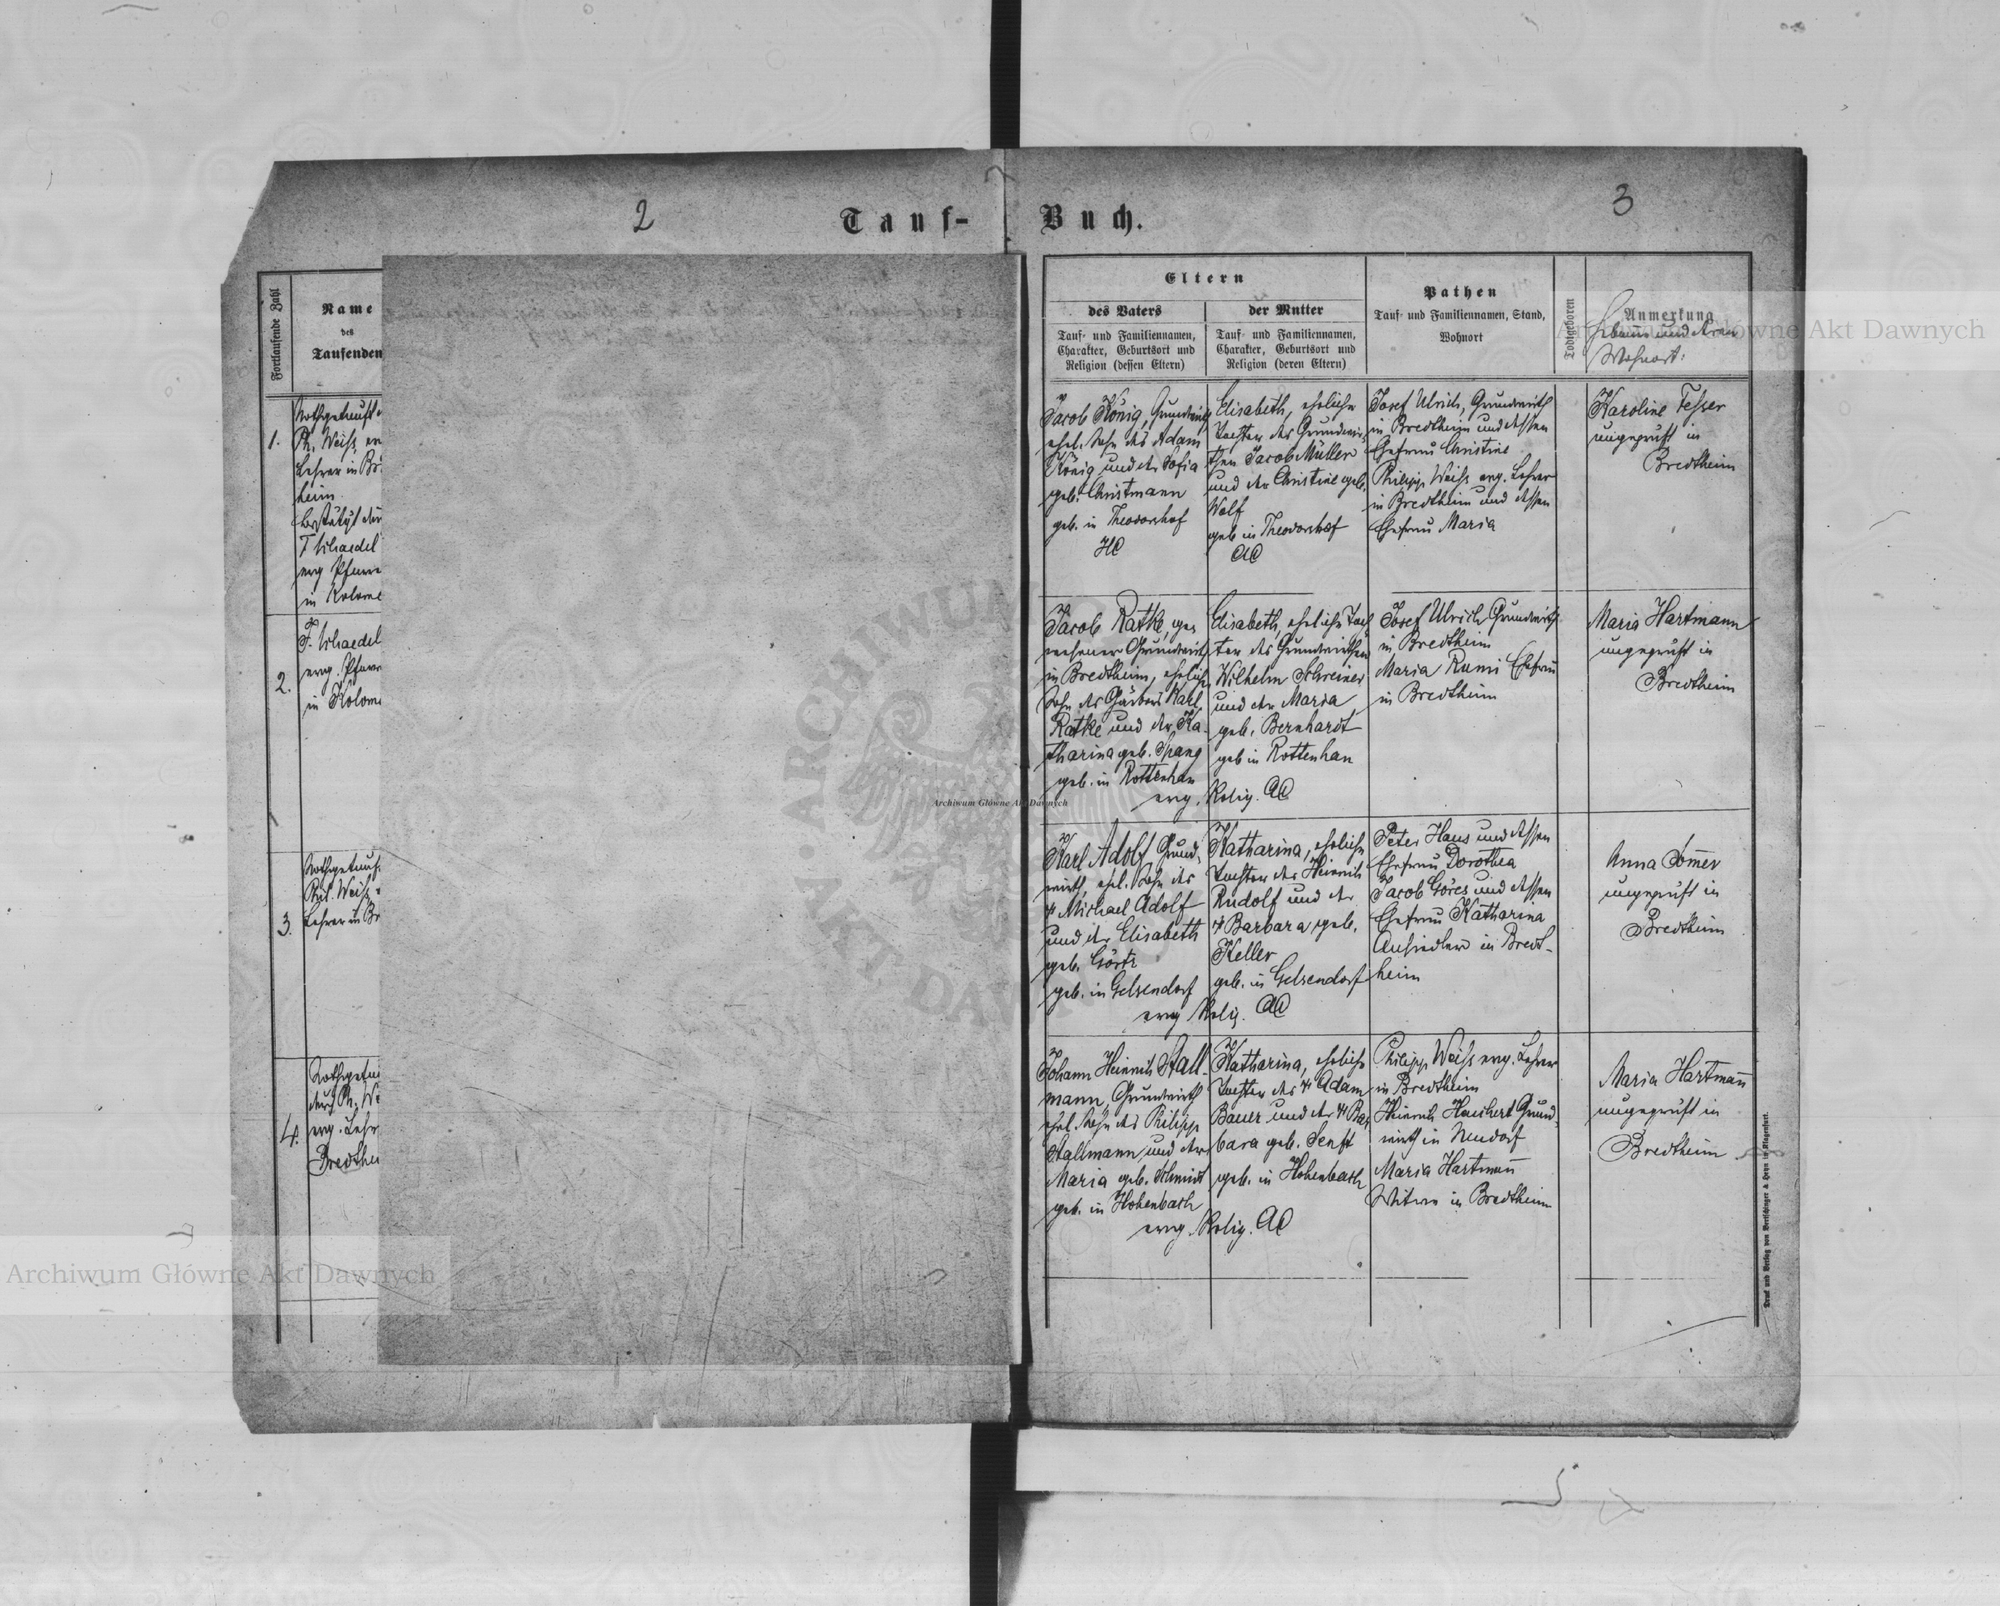 2
Tauf-
Buch.
3
Fortlaufende Zahl
Name
des
Taufenden
1.
Nothgetauft
Ph. Weiss,
Lehrer in
heim
bestätigt
F. Schaedel
evg Pfarre
in Kolome
2.
F. Schaedel
evg. Pfarr
in Kolome
3.
Nothgetauft
Phil. Weiss
Lehrer in Br
4.
durch Ph. We
evg. Lehr
Bredthei
Eltern
des Vaters
Tauf- und Familiennamen,
Charakter, Geburtsort und
Religion (dessen Eltern)
der Mutter
Tauf- und Familiennamen,
Charakter, Geburtsort und
Religion (deren Eltern)
Pathen
Tauf- und Familiennamen, Stand,
Wohnort
Todtgeboren
Anmerkung
Hebamme und deren
Wohnort:
Jacob König, Grundwirth
ehel. Sohn des Adam
König und der Sofia
geb. Christmann
geb. in Theodorshof
HC
Elisabeth, eheliche
Tochter des Grundwir-
then Jacob Müller
und der Christine geb.
Wolf
geb in Theodorshof
AC
Josef Ulrich, Grundwirth
in Bredtheim und dessen
Ehefrau Christine
Philipp Weiss evg. Lehrer
in Bredtheim und dessen
Ehefrau Maria
Karoline Tesser
ungeprüft in
Bredtheim
Jacob Ratke, ge-
wesener Grundwirth
in Bredtheim, ehelich.
Sohn des Karl
Ratke und der Ka-
tharina geb. Spang
geb. in Rottenhan
Elisabeth, eheliche Toch
ter des Grundwirthen
Wilhelm Schreiner
und der Maria
geb. Bernhardt
geb in Rottenhan
evg. Relig. AC
Josef Ulrich Grundwirth
in Bredtheim
Maria Rumi Ehefrau
in Bredtheim
Maria Hartmann
ungeprüft in
Bredtheim
Karl Adolf, Grund-
wirth, ehel. Sohn des
Michael Adolf
und der Elisabeth
geb. Görtz
geb. in Gelsendorf
Katharina, eheliche
Tochter des Heinrich
Rudolf und der
Barbara geb.
Keller
geb. in Gelsendorf
evg Relig. AC
Peter Haus und dessen
Ehefrau Dorothea
Jacob Göres und dessen
Ehefrau Katharina
Ansiedler in Bredt-
heim
Anna Somer
ungeprüft in
Bredtheim
Johann Heinrich Stall-
mann, Grundwirth
ehel. Sohn des Philipp
Stallmann und der
Maria geb. Schmidt
geb. in Hohenbach
Katharina, eheliche
Tochter des Adam
Bauer und der Bar-
bara geb. Senft
geb. in Hohenbach
evg. Relig. AC
Philipp Weiss evg. Lehrer
in Bredtheim
Heinrich Haushert Grund-
wirth in Neudorf
Maria Hartmann
Witwe in Bredtheim
Maria Hartmann
ungeprüft in
Bredtheim
Druck und Verlag von Bertschinger & Heyn in Klagenfurt.
Archiwum Główne Akt Dawnych
Archiwum Główne Akt Dawnych
Archiwum Główne Akt Dawnych
ARCHIWUM
AKT DAW